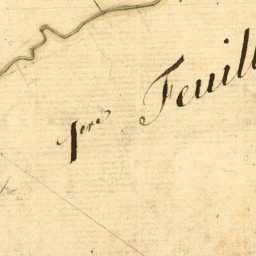 1ere Feuill